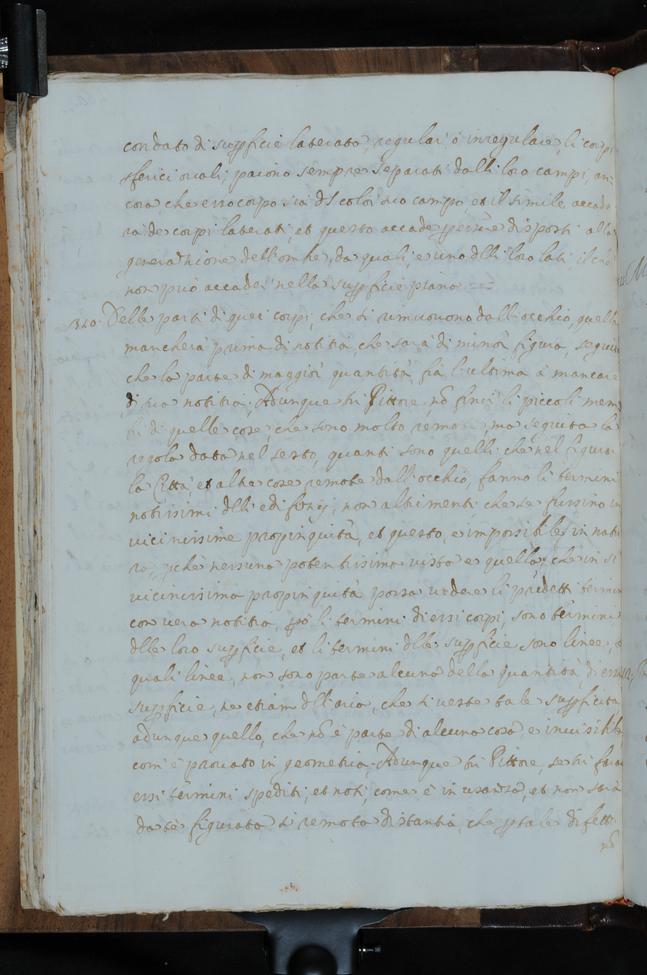 condato di suppficie laterata, regulari ò inregulare, li corpi
sferici ovali, paiono sempre separati dalli loro campi, an-
cora, che esso corpo sia dl color suo campo et il simile accade
rà de corpi laterati, et questo accade p essere disposti alla
generatione dell'ombre, da quali, e uno dlli loro lati il che
non può accader nella suppficie piana.
340. Delle parti di quei corpi, che si rimuovono dall'occhio, quella
mancherà prima di notitia, che sarà di minor figura, seguita
che la parte di maggior quantità fia l'ultima à mancare
di sua notitia. Adunque tu Pittore, nō finir li piccoli mem
bri di quelle cose, che sono molto remote, ma seguita la
regola data nel sesto, quanti sono quelli che nel figurar
la Città, et altre cose remote dall'occhio, fanno li termini
notissimi dlli edifitij, non altrimenti che se fussino in
vicinissime propinquità, et questo, e impossibile in natu
ra, pchè nessuna potentissima vista e quella, che in sì
vicinissima propinquità possa vedere li predetti termini
con vera notitia, pò li termini di essi corpi, sono termini
dlle loro suppficie, et li termini dlle suppficie sono linee, le
quali linee, non sono parte alcuna della quantità, di essa
suppficie, ne etiam dll'aria, che si veste tale suppficie,
adunque quello, che nō è parte di alcuna cosa, e invisibile
com'è provato in geometria. Adunque tu Pittore, se tu farai
essi termini spediti, et noti, come è in usanza, et non sarà
da te figurata sì remota distantia, che p tale difetto
nō